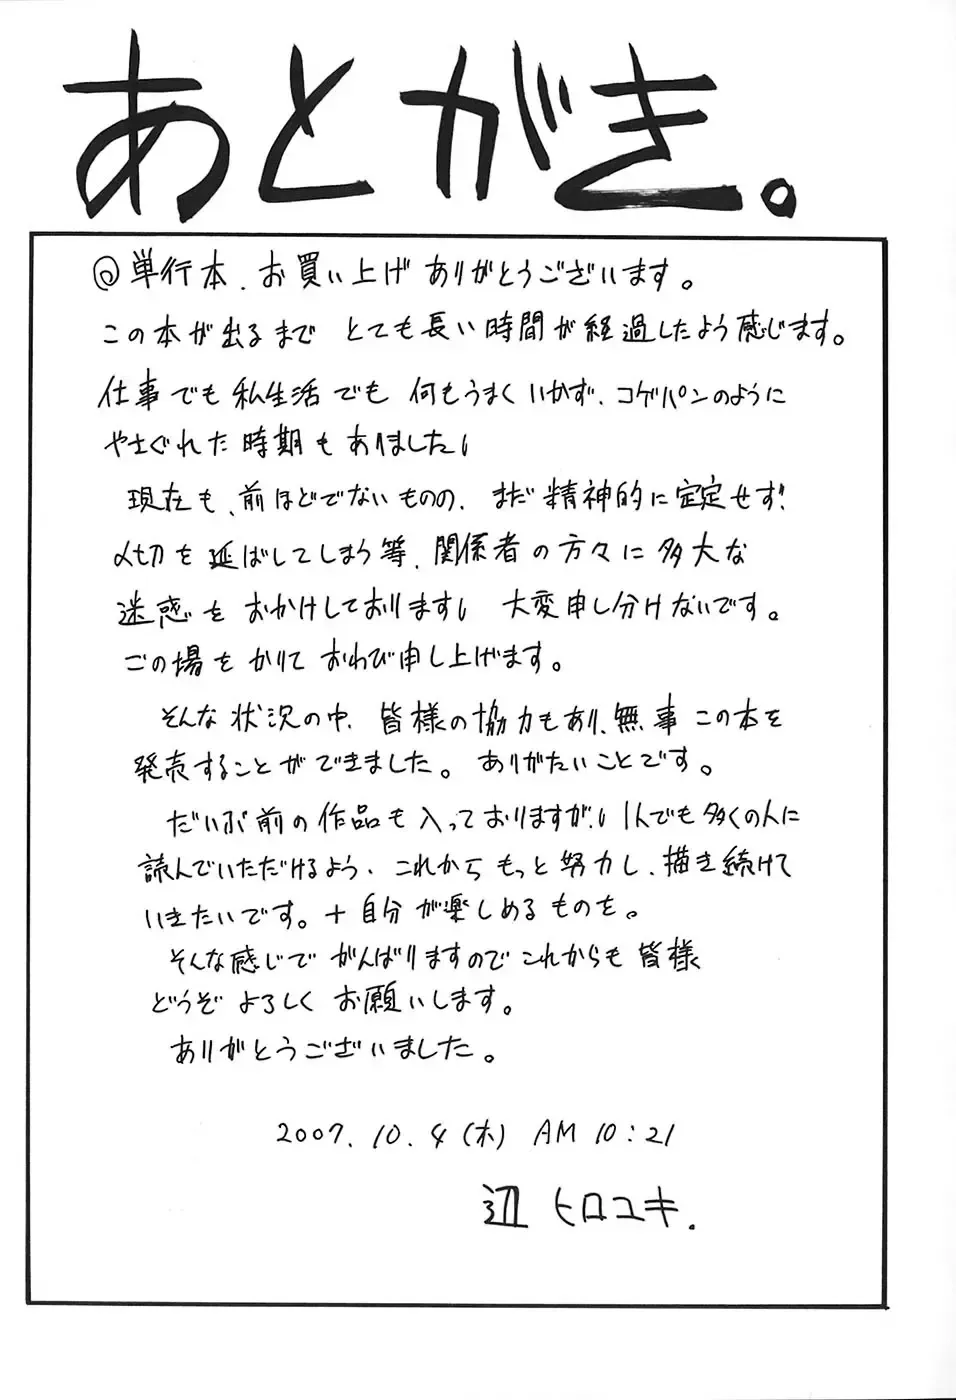 あとがき。
@単行本、お買い上げありがとうございます。
この本が出るまで とても長い時間が経過したよう感じます。
仕事でも私生活でも 何もうまくいかず、コゲパンのように
やさぐれた時期もありました。
現在も、前ほどでないものの、まだ精神的に安定せず!
〆切を延ばしてしまう等、関係者の方々に多大な
迷惑をおかけしております。 大変申し分けないです。
この場をかりて おわび申し上げます。
そんな状況の中、皆様の協力もあり、無事この本を
発売することができました。ありがたいことです。
だいぶ前の作品も入っておりますが、1人でも多くの人に
読んでいただけるよう、これからもっと努力し、描き続けて
いきたいです。+自分が楽しめるものを。
そんな感じで がんばりますので これからも皆様
どうぞ よろしく お願いします。
ありがとうございました。
2007.10.4(木) AM 10:21
辺 ヒロユキ.